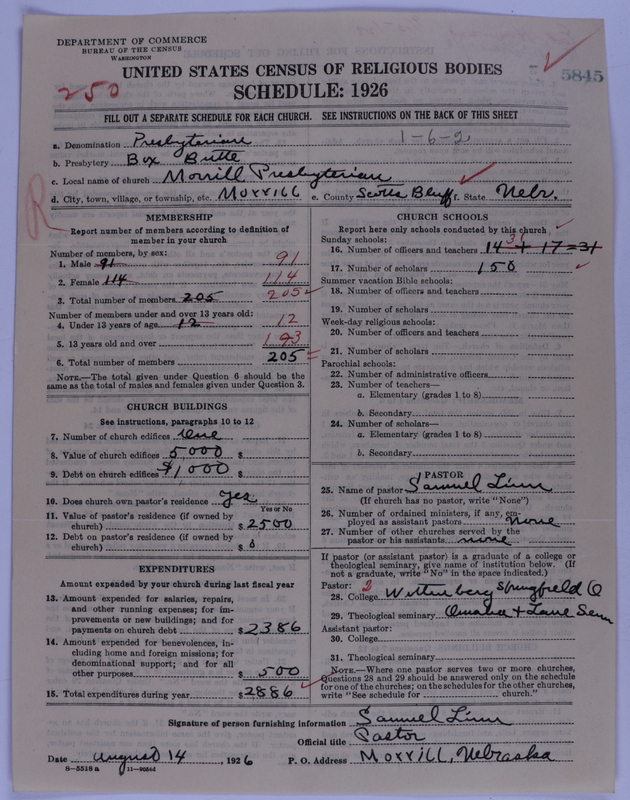 DEPARTMENT OF COMMERCE
BUREAU OF THE CENSUS
WASHINGTON
UNITED STATES CENSUS OF RELIGIOUS BODIES
5845
250
SCHEDULE: 1926
FILL OUT A SEPARATE SCHEDULE FOR EACH CHURCH. SEE INSTRUCTIONS ON THE BACK OF THIS SHEET
a. Denomination Presbyterian 1-6-2
b. Presbytery Box Butte
c. Local name of church Morrill Presbyterian
d. City, town, village, or township, etc. Morrill e. County Scotts Bluff f. State Nebr.
R
MEMBERSHIP
Report number of members according to definition of
member in your church
Number of members, by sex:
1. Male 91 91
2. Female 114 114
3. Total number of members 205 205
Number of members under and over 13 years old:
4. Under 13 years of age 12 12
5. 13 years old and over 193
6. Total number of members 205
NOTE.—The total given under Question 6 should be
the same as the total of males and females given under Question 3.
CHURCH BUILDINGS
See instructions, paragraphs 10 to 12
7. Number of church edifices One
8. Value of church edifices 5,000 $
9. Debt on church edifices $1,000 $
10. Does church own pastor's residence Yes
Yes or No
11. Value of pastor's residence (if owned by
church) $2500
12. Debt on pastor's residence (if owned by
church) $ 0
EXPENDITURES
Amount expended by your church during last fiscal year
13. Amount expended for salaries, repairs,
and other running expenses; for im-
provements or new buildings; and for
payments on church debt $2386
14. Amount expended for benevolences, in-
cluding home and foreign missions; for
denominational support; and for all
other purposes $ 500
15. Total expenditures during year $2886
CHURCH SCHOOLS
Report here only schools conducted by this church
Sunday schools:
31
16. Number of officers and teachers 14 + 17 = 31
17. Number of scholars 150
Summer vacation Bible schools:
18. Number of officers and teachers
19. Number of scholars
Week-day religious schools:
20. Number of officers and teachers
21. Number of scholars
Parochial schools:
22. Number of administrative officers
23. Number of teachers—
a. Elementary (grades 1 to 8)
b. Secondary
24. Number of scholars—
a. Elementary (grades 1 to 8)
b. Secondary
PASTOR
25. Name of pastor Samuel Linn
(If church has no pastor, write "None")
26. Number of ordained ministers, if any, em-
ployed as assistant pastors none
27. Number of other churches served by the
pastor or his assistants none
If pastor (or assistant pastor) is a graduate of a college or
theological seminary, give name of institution below. (If
not a graduate, write "No" in the space indicated.)
Pastor: 3
28. College Wittenberg Springfield O
29. Theological seminary Omaha + Lane Sem
Assistant pastor:
30. College
31. Theological seminary
NOTE.—Where one pastor serves two or more churches,
Questions 28 and 29 should be answered only on the schedule
for one of the churches; on the schedules for the other churches,
write "See schedule for church."
Signature of person furnishing information Samuel Linn
Official title Pastor
Date August 14, 1926 P. O. Address Morrill, Nebraska
8—5518a